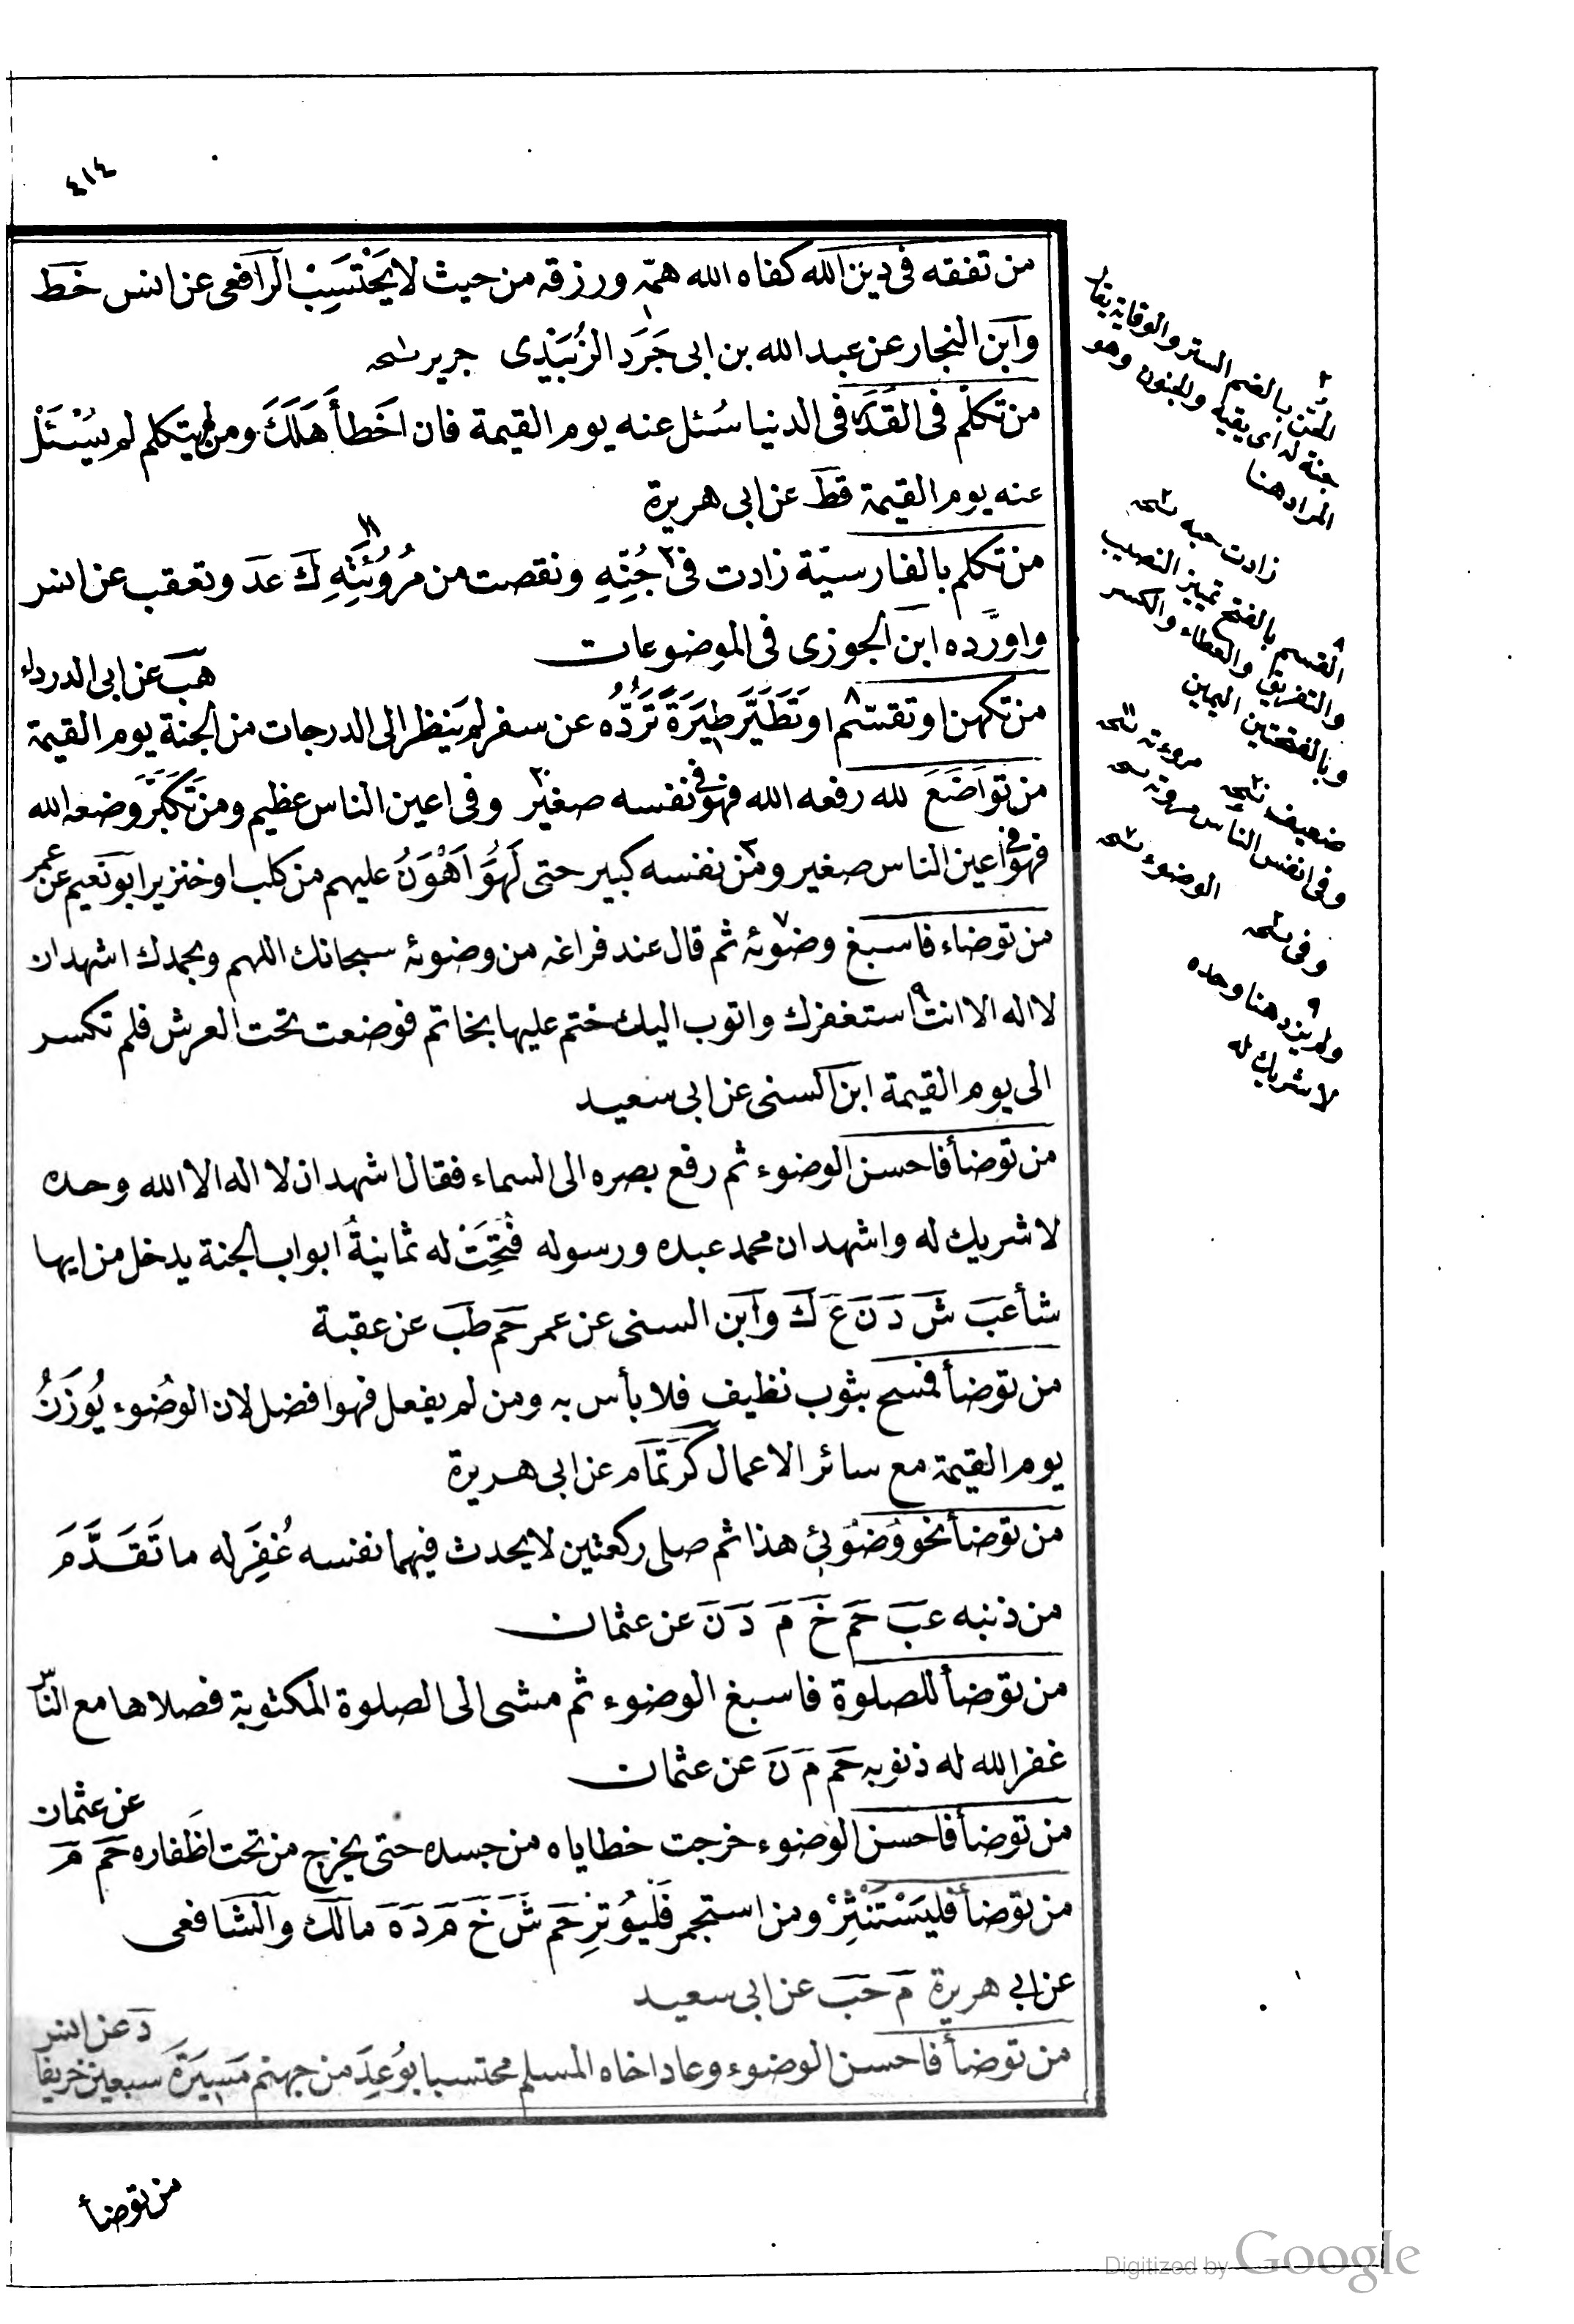 ٤١٤
من تفقه فى دين الله كفاه الله همّه ورزقه من حيث لا يَحْتَسِبْ الرافعى عن انس خط
وابن النجار عن عبد الله بن ابى جَرَد الزُبَيْدِى جرير نسخه
من تكلّم فى القَدَر فى الدنيا سُئل عنه يوم القيمة فان اَخطأ هَلَكَ ومن لم يتكلم لم يُسْئَلْ
عنه يوم القيمة قط عن ابى هريرة
من تكلم بالفارسيّة زادت فى جُنِّهِ ونقصت من مُرُوئَتِهِ ك عد وتعقب عن انس
واورده ابن الجوزى فى الموضوعات
هب عن ابى الدرداء
من تكهن او تقسّم او تَطَيَّرَ طِيَرَةً تَرُدُّه عن سفر لم ينظر الى الدرجات من الجنة يوم القيمة
من تواضَعَ لله رفعه الله فهو فى نفسه صغير وفى اعين الناس عظيم ومن تَكَبَّرَ وضعه الله
فهو فى اعين الناس صغير ومن نفسه كبير حتى لَهُوَ اَهْوَنُ عليهم من كلب او خنزير ابو نعيم عن عمر
من توضاء فاسبغ وضوئه ثم قال عند فراغه من وضوئه سبحانك اللهم وبحمدك اشهد ان
لا اله الا انت استغفرك واتوب اليك ختم عليها بخاتم فوضعت تحت العرش فلم تكسر
الى يوم القيمة ابن السنى عن ابى سعيد
من توضأ فاحسن الوضوء ثم رفع بصره الى السماء فقال اشهد ان لا اله الا الله وحده
لا شريك له واشهد ان محمد عبده ورسوله فُتِحَتْ له ثمانيةُ ابواب الجنة يدخل من ايها
شأ عب ش د ن ع ك وابن السنى عن عمر حم طب عن عقبة
من توضأ فمسح بثوب نظيف فلا بأس به ومن لم يفعل فهو افضل لان الوضُوء يُوزَنُ
يوم القيمة مع سائر الاعمال كر تمام عن ابى هريرة
من توضأ نحو وُضُوئِى هذا ثم صلى ركعتين لا يحدث فيهما نفسه غُفِرَ له ما تَقَدَّمَ
من ذنبه عب حم خ م د ن عن عثمان
من توضأ للصلوة فاسبغ الوضوء ثم مشى الى الصلوة المكتوبة فصلاها مع النّاس
غفر الله له ذنوبه حم م ن عن عثمان
عن عثمان
من توضأ فاحسن الوضوء خرجت خطاياه من جسده حتى يخرج من تحت اظفاره حم م
من توضأ فليَسْتَنْثِرْ ومن استجمر فَلْيُوتِرْ حم ش خ م د ه مالك والشافعى
عن ابى هريرة م حب عن ابى سعيد
د عن انس
من توضأ فاحسن الوضوء وعاد اخاه المسلم محتسبا بُوعِدَ من جهنم مَسِيرَةَ سبعين خريفا
من توضأ
الجنن بالضم الستر والوقاية يقال
جنة له اى يقيه والجنون وهو
المراد هنا
زادت حبه نسخه
القسم بالفتح تمييز النصيب
والتفريق والعطاء والكسر
وبالفتحتين اليمين
مروءته نسخه
ضعيف نسخه
وفى انفس الناس
الوضوء نسخه
وفى نسخه
ولم يزد هنا وحده
لا شريك له
Digitized by Google